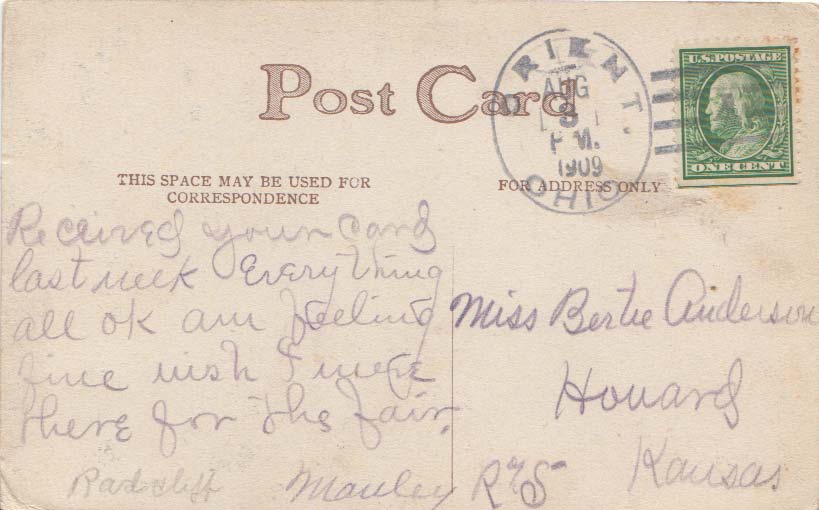 Post Card
ORIENT.
AUG
3
P.M.
1909
OHIO
U.S. POSTAGE
ONE CENT
THIS SPACE MAY BE USED FOR
CORRESPONDENCE
FOR ADDRESS ONLY
Received your card
last week Everything
all ok am feeling
fine wish I were
there for the fair.
Radcliff Manley
Miss Bertie Anderson
Howard
Kansas